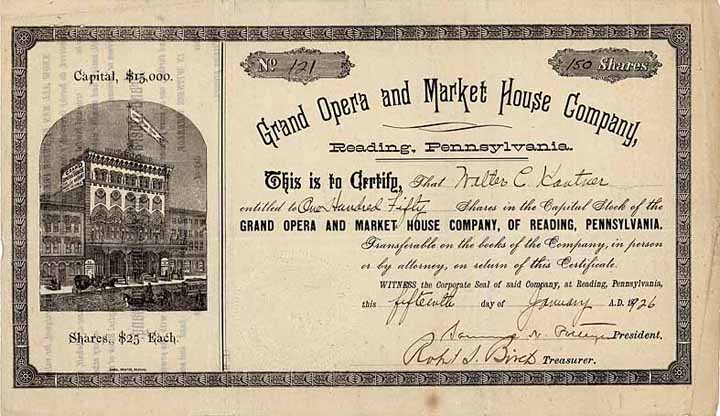 Capital, $15,000.
Shares, $25 Each.
No 121
150 Shares
Grand Opera and Market House Company,
Reading, Pennsylvania.
This is to Certify, That Walter C Kantner
entitled to One Hundred Fifty Shares in the Capital Stock of the
GRAND OPERA AND MARKET HOUSE COMPANY, OF READING, PENNSYLVANIA.
Transferable on the books of the Company, in person
or by attorney, on return of this Certificate.
WITNESS the Corporate Seal of said Company, at Reading, Pennsylvania,
this fifteenth day of January A.D. 1926
President.
Robt S. Birch Treasurer.